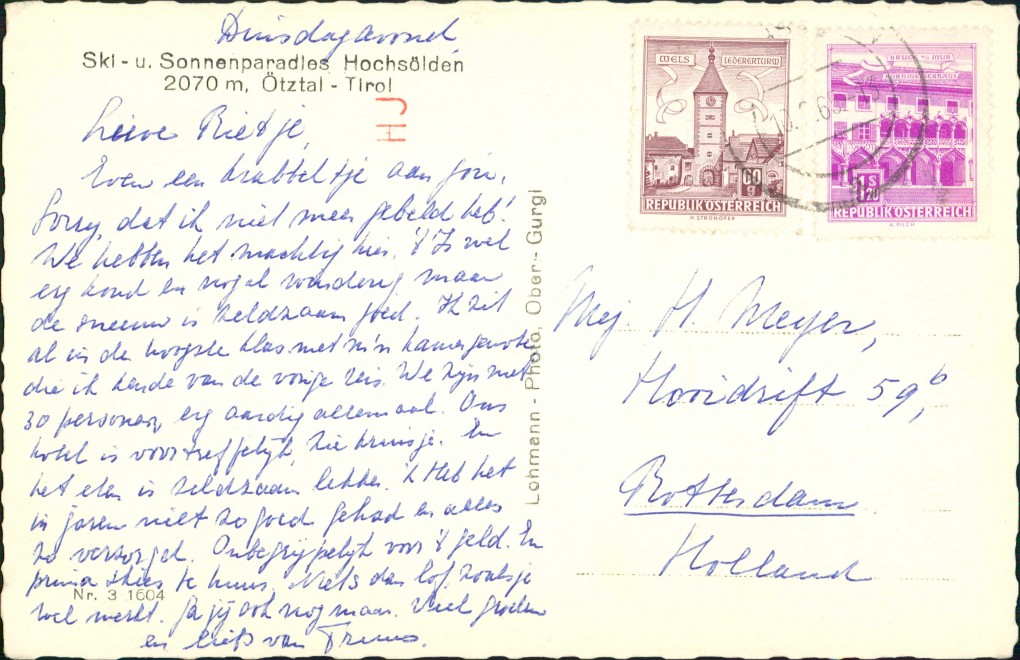 Dinsdagavond
Ski - u. Sonnenparadies Hochsölden
2070 m, Ötztal - Tirol
Lieve Rietje,
Even een krabbeltje aan jou.
Sorry dat ik niet meer gebeld heb!
We hebben het machtig hier. 't Is wel
erg koud en nogal winderig maar
de sneeuw is zeldzaam goed. Ik zit
al in de hoogste klas met m'n kamergenote
die ik kende van de vorige reis. We zijn met
30 personen, erg aardig allemaal. Ons
hotel is voortreffelijk, zie kruisje. En
het eten is zeldzaam lekker. 'k Heb het
in jaren niet zo goed gehad en alles
zo verzorgd. Onbegrijpelijk voor 't geld. En
prima skies te huur. Niets dan lof, zoals je
wel merkt. Ga jij ook nog maar. Veel groeten
en liefs van Truus.
Nr. 3 1604
Lohmann - Photo, Ober - Gurgl
WELS LEDERERTURM
60 g
REPUBLIK ÖSTERREICH
H. STROHOFER
BRUCK A. D. MUR
KORNMESSERHAUS
S 1.20
REPUBLIK ÖSTERREICH
G. PILCH
Mej. H. Meyer,
Hooidrift 59b,
Rotterdam
Holland